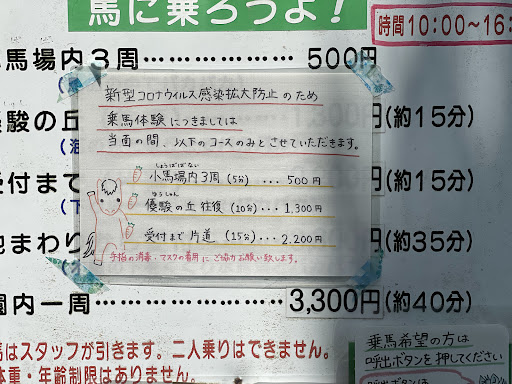 馬に乗ろうよ!
時間10:00～16:
馬場内3周 500円
駿の丘 (約15分)
受付まで 円(約15分)
まわり 円(約35分)
園内一周 3,300円(約40分)
新型コロナウイルス感染拡大防止のため
乗馬体験につきましては
当面の間、以下のコースのみとさせていただきます。
しょうばばない
小馬場内3周(5分)...500円
ゆうしゅん
優駿の丘往復(10分)...1,300円
受付まで片道(15分)...2,200円
手指の消毒・マスクの着用にご協力お願い致します。
馬はスタッフが引きます。二人乗りはできません。
体重・年齢制限はありません。
乗馬希望の方は
呼出ボタンを押してください
呼出ボタンは